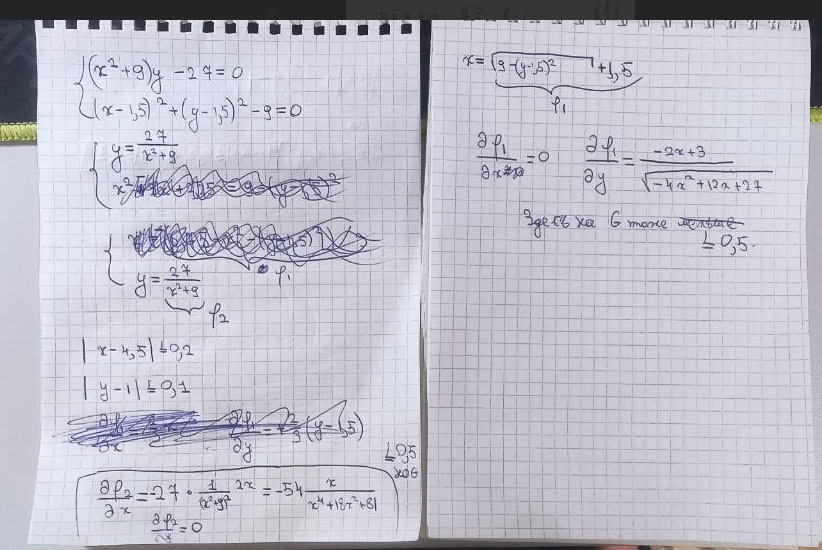 (x²+9)y - 27 = 0
(x-1,5)² + (y-1,5)² - 9 = 0
y = 27/(x²+9)
y = 27/(x²+9)
φ₁
φ₂
|x-4,5| ≤ 0,2
|y-1| ≤ 0,1
≤ 0,5
на G
∂φ₂/∂x = -27 · 1/(x²+9)² 2x = -54 x/(x⁴+18x²+81)
∂φ₂/∂y = 0
x = √(9-(y-1,5)²) + 1,5
φ₁
∂φ₁/∂x = 0 ∂φ₁/∂y = (-2x+3)/√(-4x²+12x+27)
Здесь на G тоже
≤ 0,5.